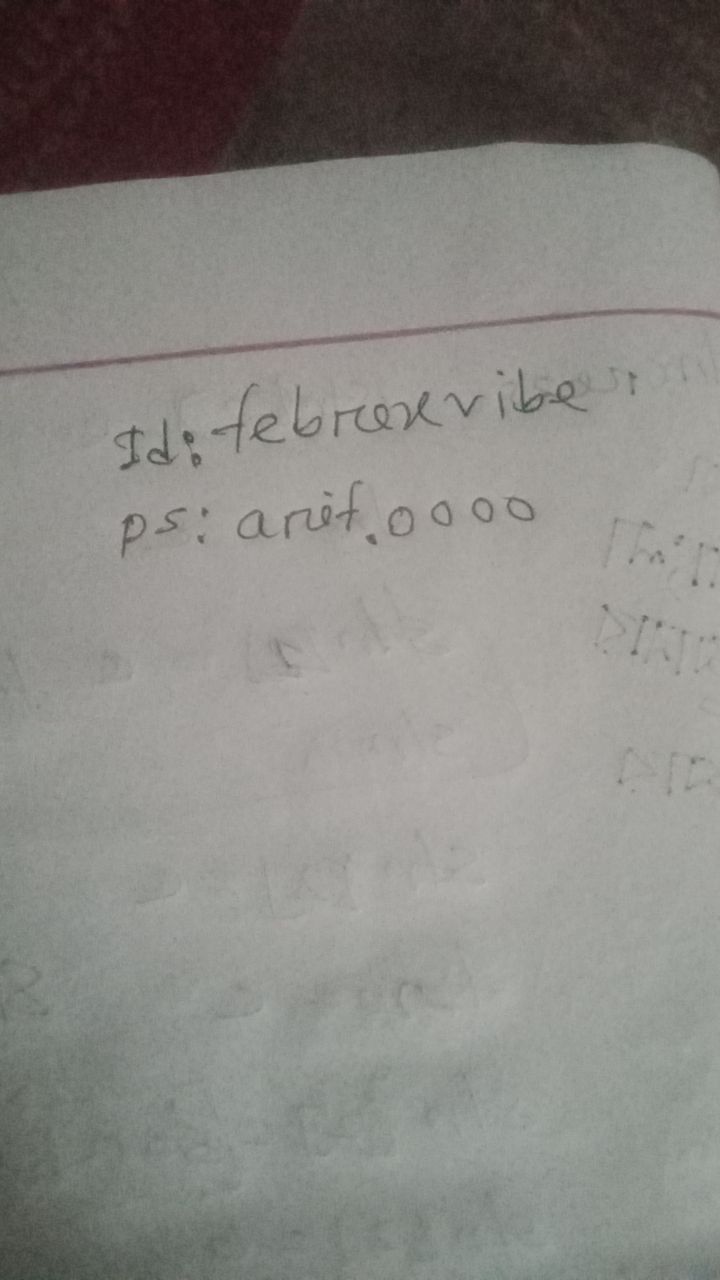 Id: febrexvibe
ps: arif.0000